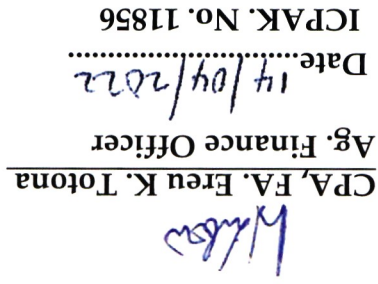 CPA, FA. Ereu K. Totona
Ag. Finance Officer
14/04/2022
Date................................
ICPAK. No. 11856